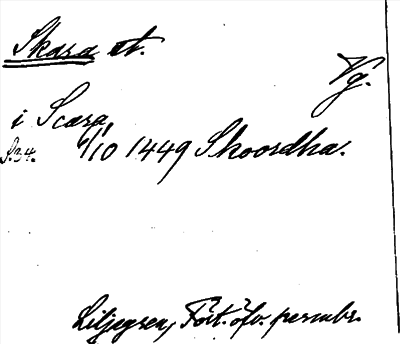 Skara st.
Vg.
i Scara
S. 34. 1/10 1449 Skoordha.
Liljegren, Fört. öfv. permbr.